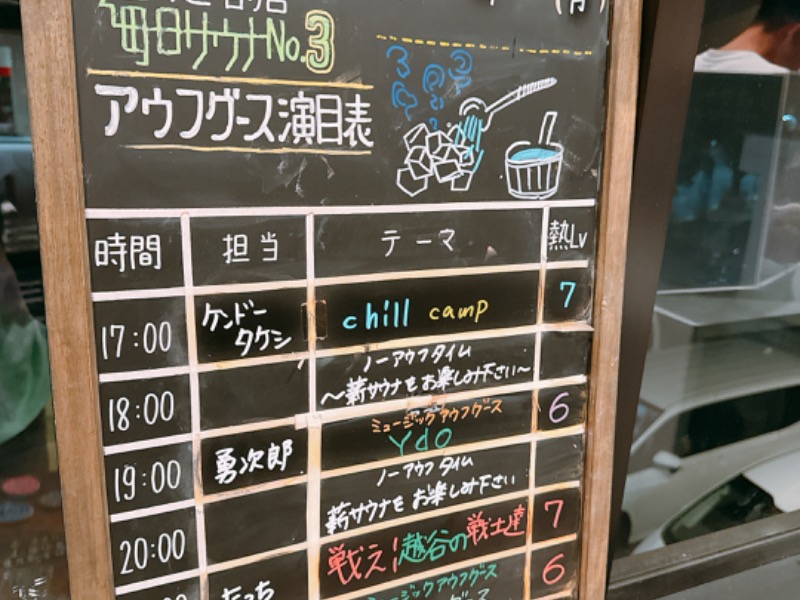 毎日サウナNo.3
アウフグース演目表
時間 担当 テーマ 熱Lv
17:00 ケンドータケシ chill camp 7
18:00 ノーアウフタイム
～薪サウナをお楽しみ下さい～
19:00 勇次郎 ミュージックアウフグース
Ydo 6
20:00 ノーアウフタイム
薪サウナをお楽しみ下さい
戦え!越谷の戦士達 7
ミュージックアウフグース 6